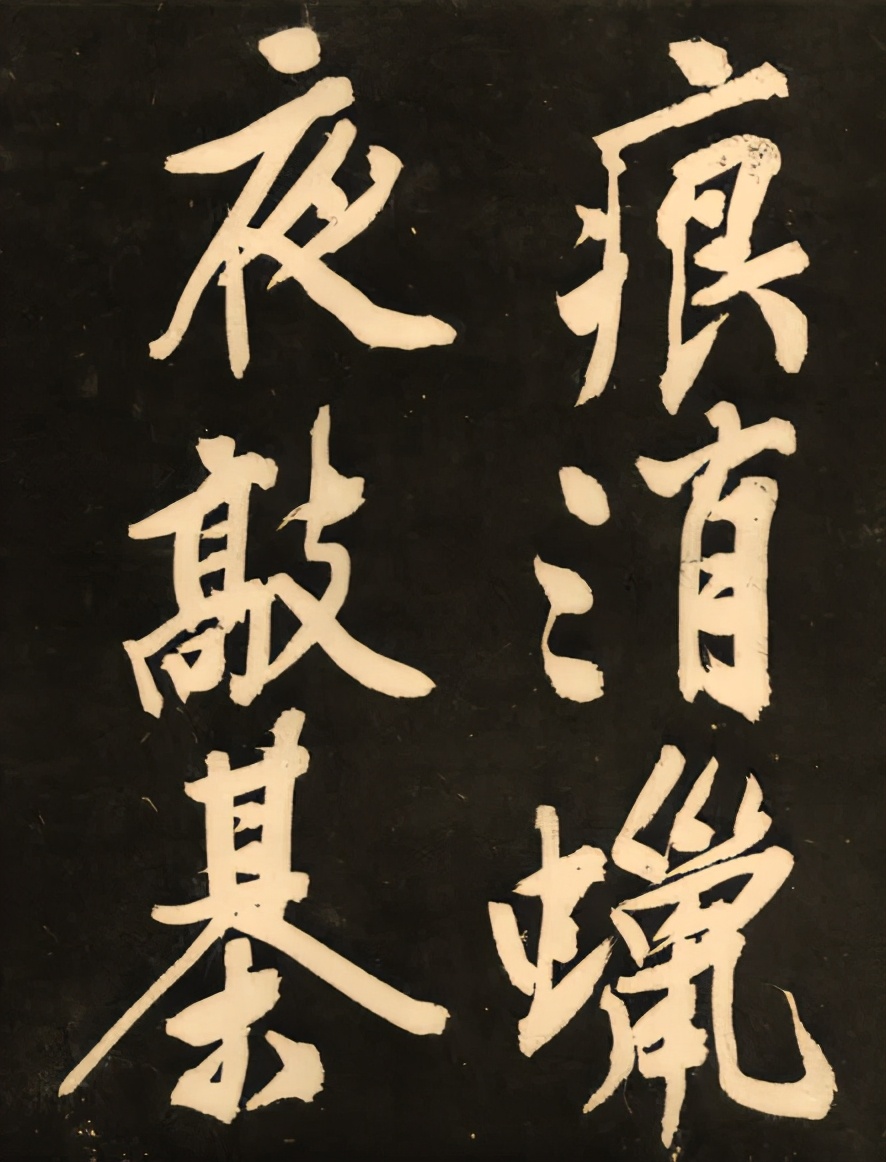 痕消蠟
夜敲棊